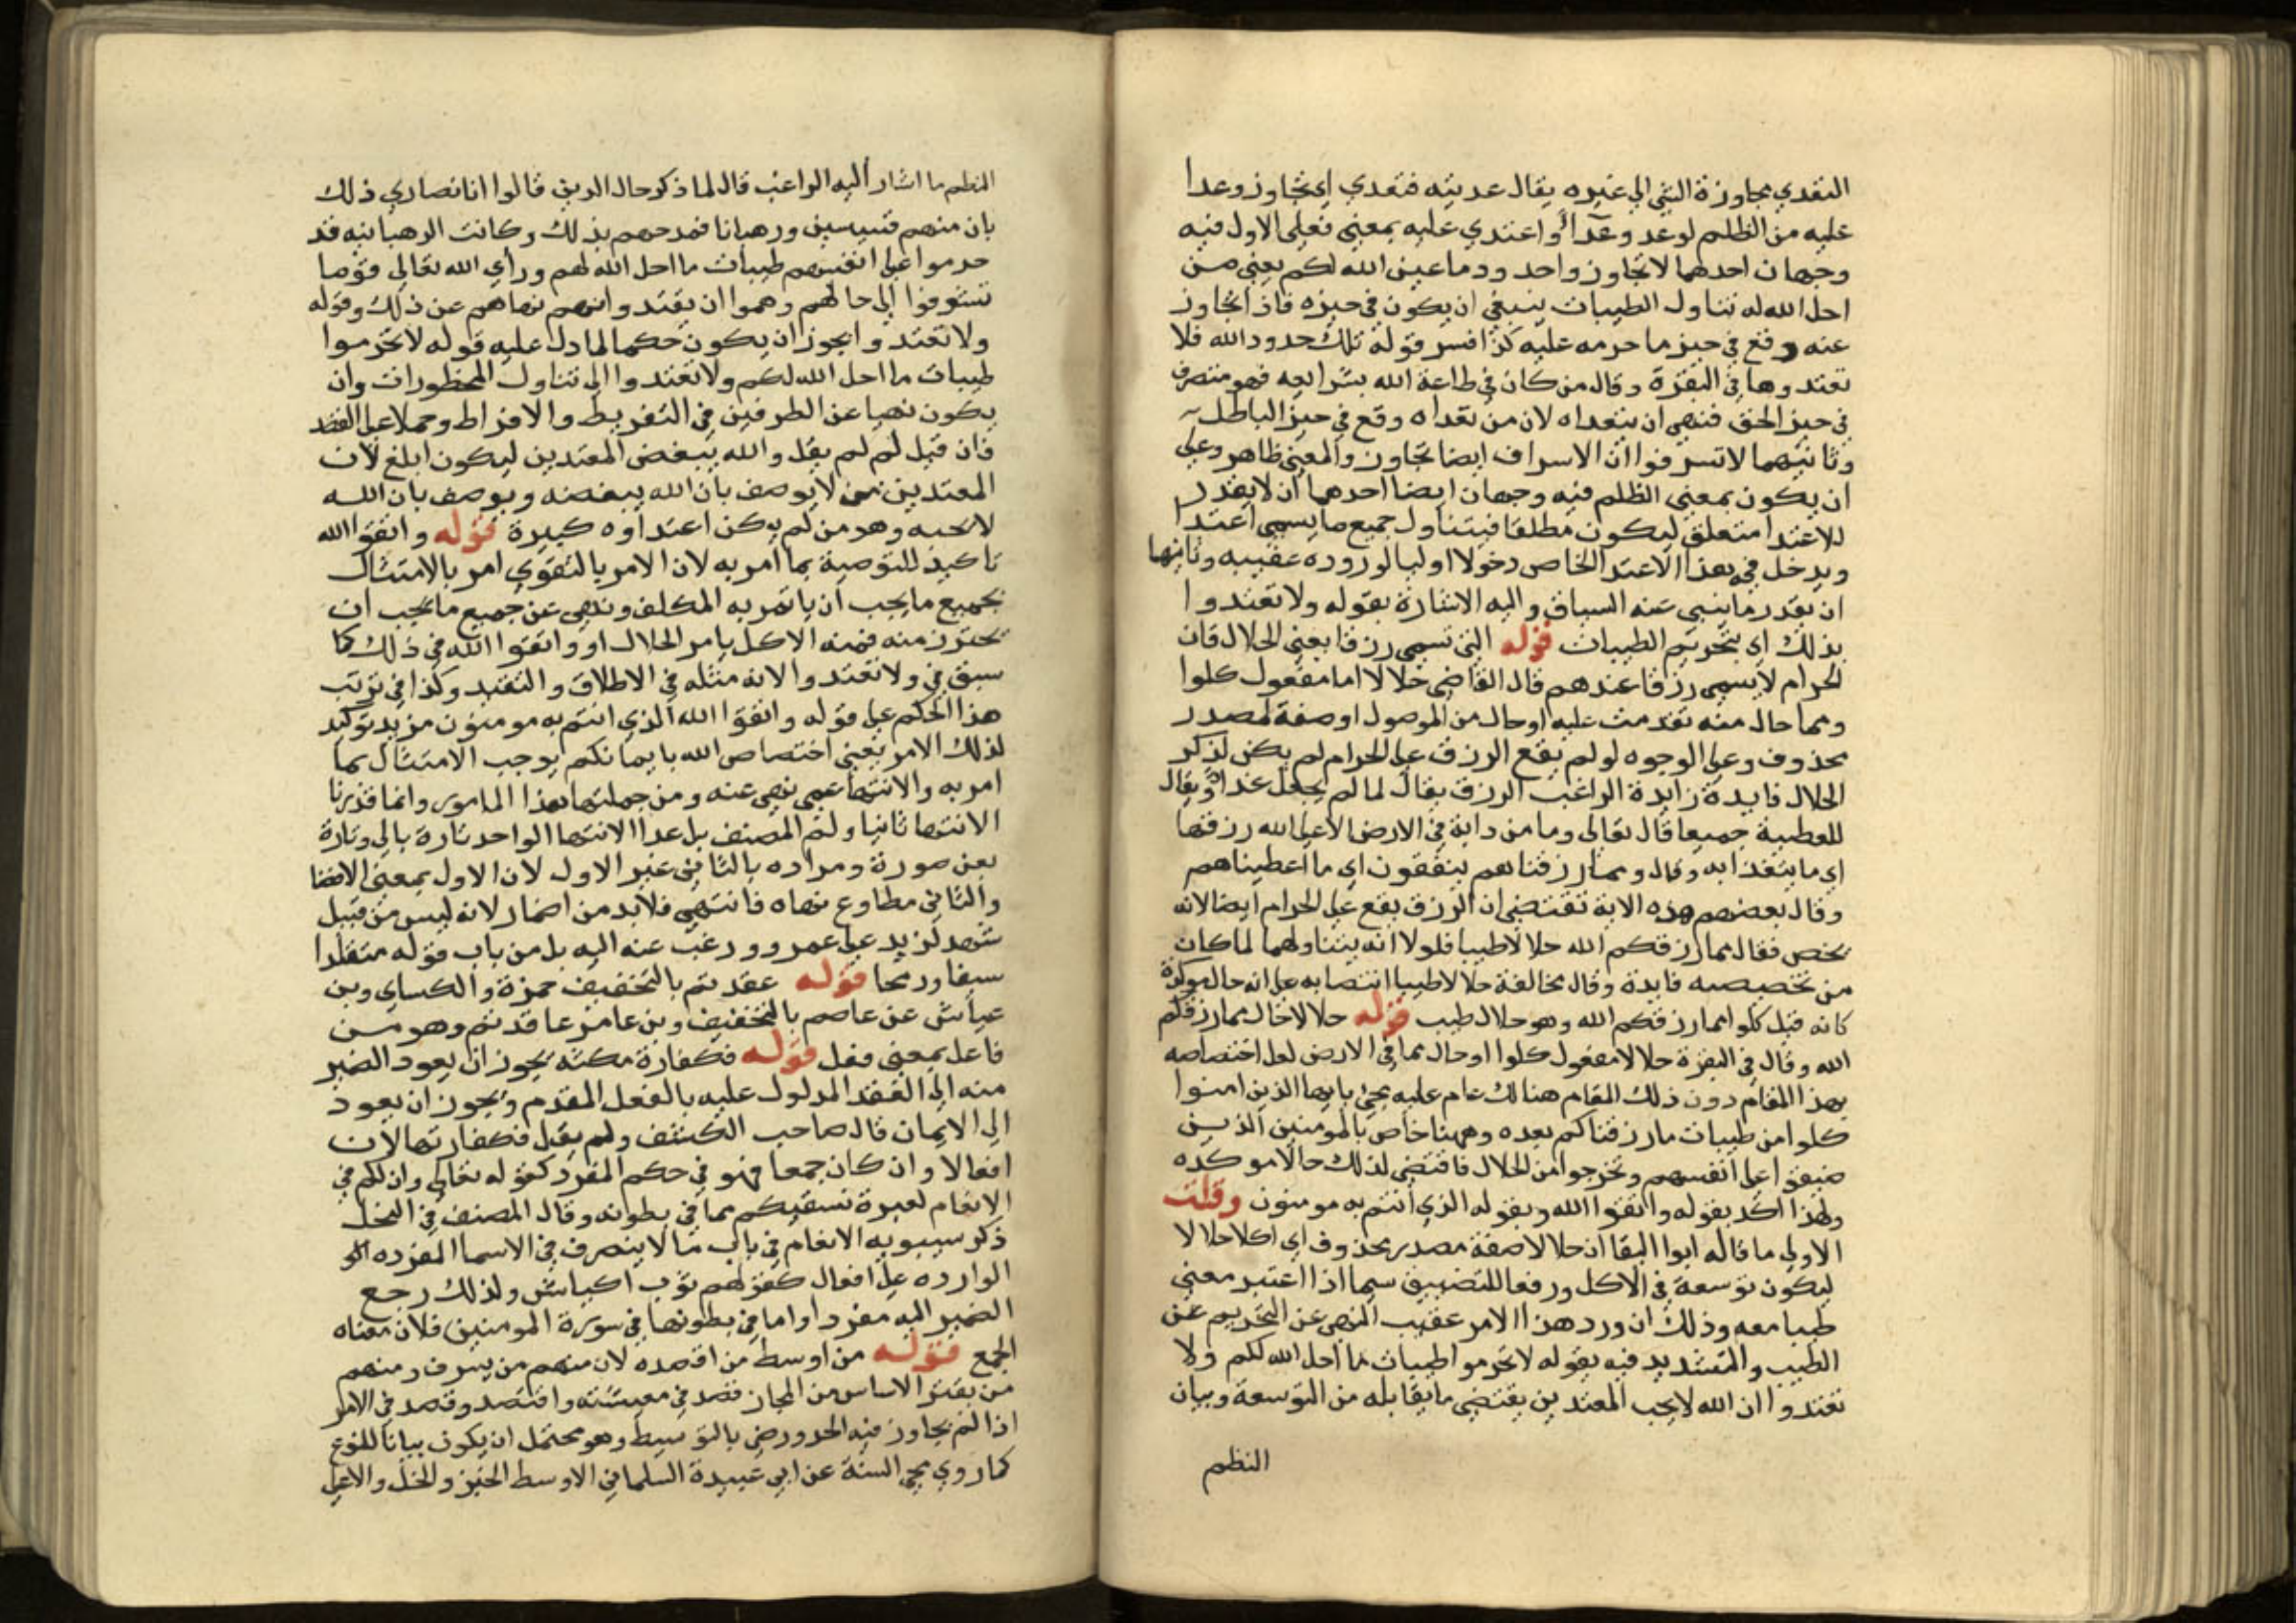 التعدي مجاوزة الشي الي غيره يقال عديته فتعدي اي تجاوز وعدا
عليه من الظلم لوعد وعداً واعتدي عليه بمعني فعلي الاول فيه
وجهان احدهما لا تجاوزوا حدود ما عين الله لكم يعني من
احل الله له تناول الطيبات ينبغي ان يكون في حيزه فاذا تجاوز
عنه وقع في حيز ما حرمه عليه كذا فسر قوله تلك حدود الله فلا
تعتدوها في البقرة وقال من كان في طاعة الله بشرايعه فهو متصرف
في حيز الحق فنهي ان يتعداه لان من تعداه وقع في حيز الباطل
وثانيهما لا تسرفوا ان الاسراف ايضا تجاوز والمعني ظاهر وعلي
ان يكون بمعني الظلم فيه وجهان ايضا احدهما ان لا يقدر
للاعتدا متعلق ليكون مطلقا فيتناول جميع ما يسمي اعتدا
ويدخل في هذا الاعتدا الخاص دخولا اوليا لوروده عقيبه وثانيها
ان يقدر ما ينبي عنه السباق واليه الاشارة بقوله ولا تعتدوا
بذلك اي بتحريم الطيبات قوله التي تسمي رزقا يعني الحلال فان
الحرام لا يسمي رزقا عندهم قال القاضي حلالا اما مفعول كلوا
ومما حال منه تقدمت عليه او حال من الموصول او صفة لمصدر
محذوف وعلي الوجوه لو لم يقع الرزق علي الحرام لم يكن لذكر
الحلال فايدة زايدة الراغب الرزق يقال لما لم يجعل غداً ويقال
للعطية جميعا قال تعالي وما من دابة في الارض الا علي الله رزقها
اي ما يتغذا به وقال ومما رزقناهم ينفقون اي ما اعطيناهم
وقال بعضهم هذه الاية تقتضي ان الرزق يقع علي الحرام ايضا لانه
يخص فقال مما رزقكم الله حلالا طيبا فلولا انه يتناولهما لما كان
من تخصيصه فايدة وقال مخالفة حلالا طيبا انتصابه علي انه حال موكدة
كانه قيل كلوا مما رزقكم الله وهو حلال طيب قوله حلالا حال مما رزقكم
الله وقال في البقرة حلالا مفعول كلوا او حال مما في الارض لعل اختصاصه
بهذا المقام دون ذلك المقام هنالك عام عليه يجي يا ايها الذين امنوا
كلوا من طيبات ما رزقناكم بعده وههنا خاص بالمومنين الذين
ضيقوا علي انفسهم وتحرجوا من الحلال فاقتضي لذلك حالا موكده
ولهذا اكد بقوله واتقوا الله وبقوله الذي انتم به مومنون وقلت
الاولي ما قاله ابوا البقا ان حلالا صفة مصدر محذوف اي اكلا حلالا
ليكون توسعة في الاكل ورفعا للتضييق سيما اذا اعتبر معني
طيبا معه وذلك ان ورد هذا الامر عقيب النهي عن التحريم عن
الطيب والتشديد فيه بقوله لا تحرموا طيبات ما احل الله لكم ولا
تعتدوا ان الله لا يحب المعتدين يقتضي ما يقابله من التوسعة وبيان
النظم
النظم ما اشار اليه الراغب قال لما ذكر حال الدين قالوا انا نصاري ذلك
بان منهم قسيسين ورهبانا فمدحهم بذلك وكانت الرهبانيه قد
حرموا علي انفسهم طيبات ما احل الله لهم وراي الله تعالي قوما
تشوفوا الي حالهم وهموا ان يقتدوا بهم نهاهم عن ذلك وقوله
ولا تعتدوا يجوز ان يكون حكما لما دل عليه قوله لا تحرموا
طيبات ما احل الله لكم ولا تعتدوا الي تناول المحظورات وان
يكون نهيا عن الطرفين في التفريط والافراط وحملا علي القصد
فان قيل لم لم يقل والله يبغض المعتدين ليكون ابلغ لان
المعتدين من لا يوصف بان الله يبغضه ويوصف بان الله
لا يحبه وهو من لم يكن اعتداوه كبيرة قوله واتقوا الله
تاكيد للتوصية بما امر به لان الامر بالتقوي امر بالامتثال
بجميع ما يجب ان ياتمر به المكلف ونهي عن جميع ما يجب ان
يحترز منه فمنه الاكل بامر الحلال او واتقوا الله في ذلك كما
سبق في ولا تعتدوا لانه مثله في الاطلاق والتقيد وكذا في ترتب
هذا الحكم علي قوله واتقوا الله الذي انتم به مومنون مزيد توكيد
لذلك الامر يعني اختصاص الله بايمانكم يوجب الامتثال بما
امر به والانتها عمي نهي عنه ومن جملتها هذا المامور وانما قدرنا
الانتها ثانيا ولم المصنف بل عدا الانتها الواحد تارة بالي وتارة
بعن صورة ومراده بالثاني غير الاول لان الاول بمعني الافضا
والثاني مطاوع نهاه فانتهي فلا بد من اضمار لانه ليس من قبيل
شهد لزيد علي عمرو ورغب عنه اليه بل من باب قوله متقلدا
سيفا ورمحا قوله عقدتم بالتخفيف حمزة والكساي وبن
عياش عن عاصم بالتخفيف وبن عامر عاقدتم وهو من
فاعل بمعني فعل قوله فكفارة نكثه يجوز ان يعود الضمير
منه الي العقد المدلول عليه بالفعل المقدم ويجوز ان يعود
الي الايمان قال صاحب الكشف ولم يقل فكفارتها لان
افعالا وان كان جمعا فهو في حكم المفرد كقوله تعالي وان لكم في
الانعام لعبرة نسقيكم مما في بطونه وقال المصنف في النحل
ذكر سيبويه الانعام في باب ما لا ينصرف في الاسما المفرده
الوارده علي افعال كقولهم ثوب اكياش ولذلك رجع
الضمير اليه مفردا واما في بطونها في سورة المومنين فلان معناه
الجمع قوله من اوسط من اقصده لان منهم من يسرف ومنهم
من يقتر الاساس من المجاز قصد في معيشته واقتصد وقصد في الامر
اذا لم يجاوز فيه الحد ورضي بالتوسط وهو محتمل ان يكون بيانا للنوع
كما روي محي السنة عن ابي عبيدة السلماني الاوسط الخبز والخل والاعلي